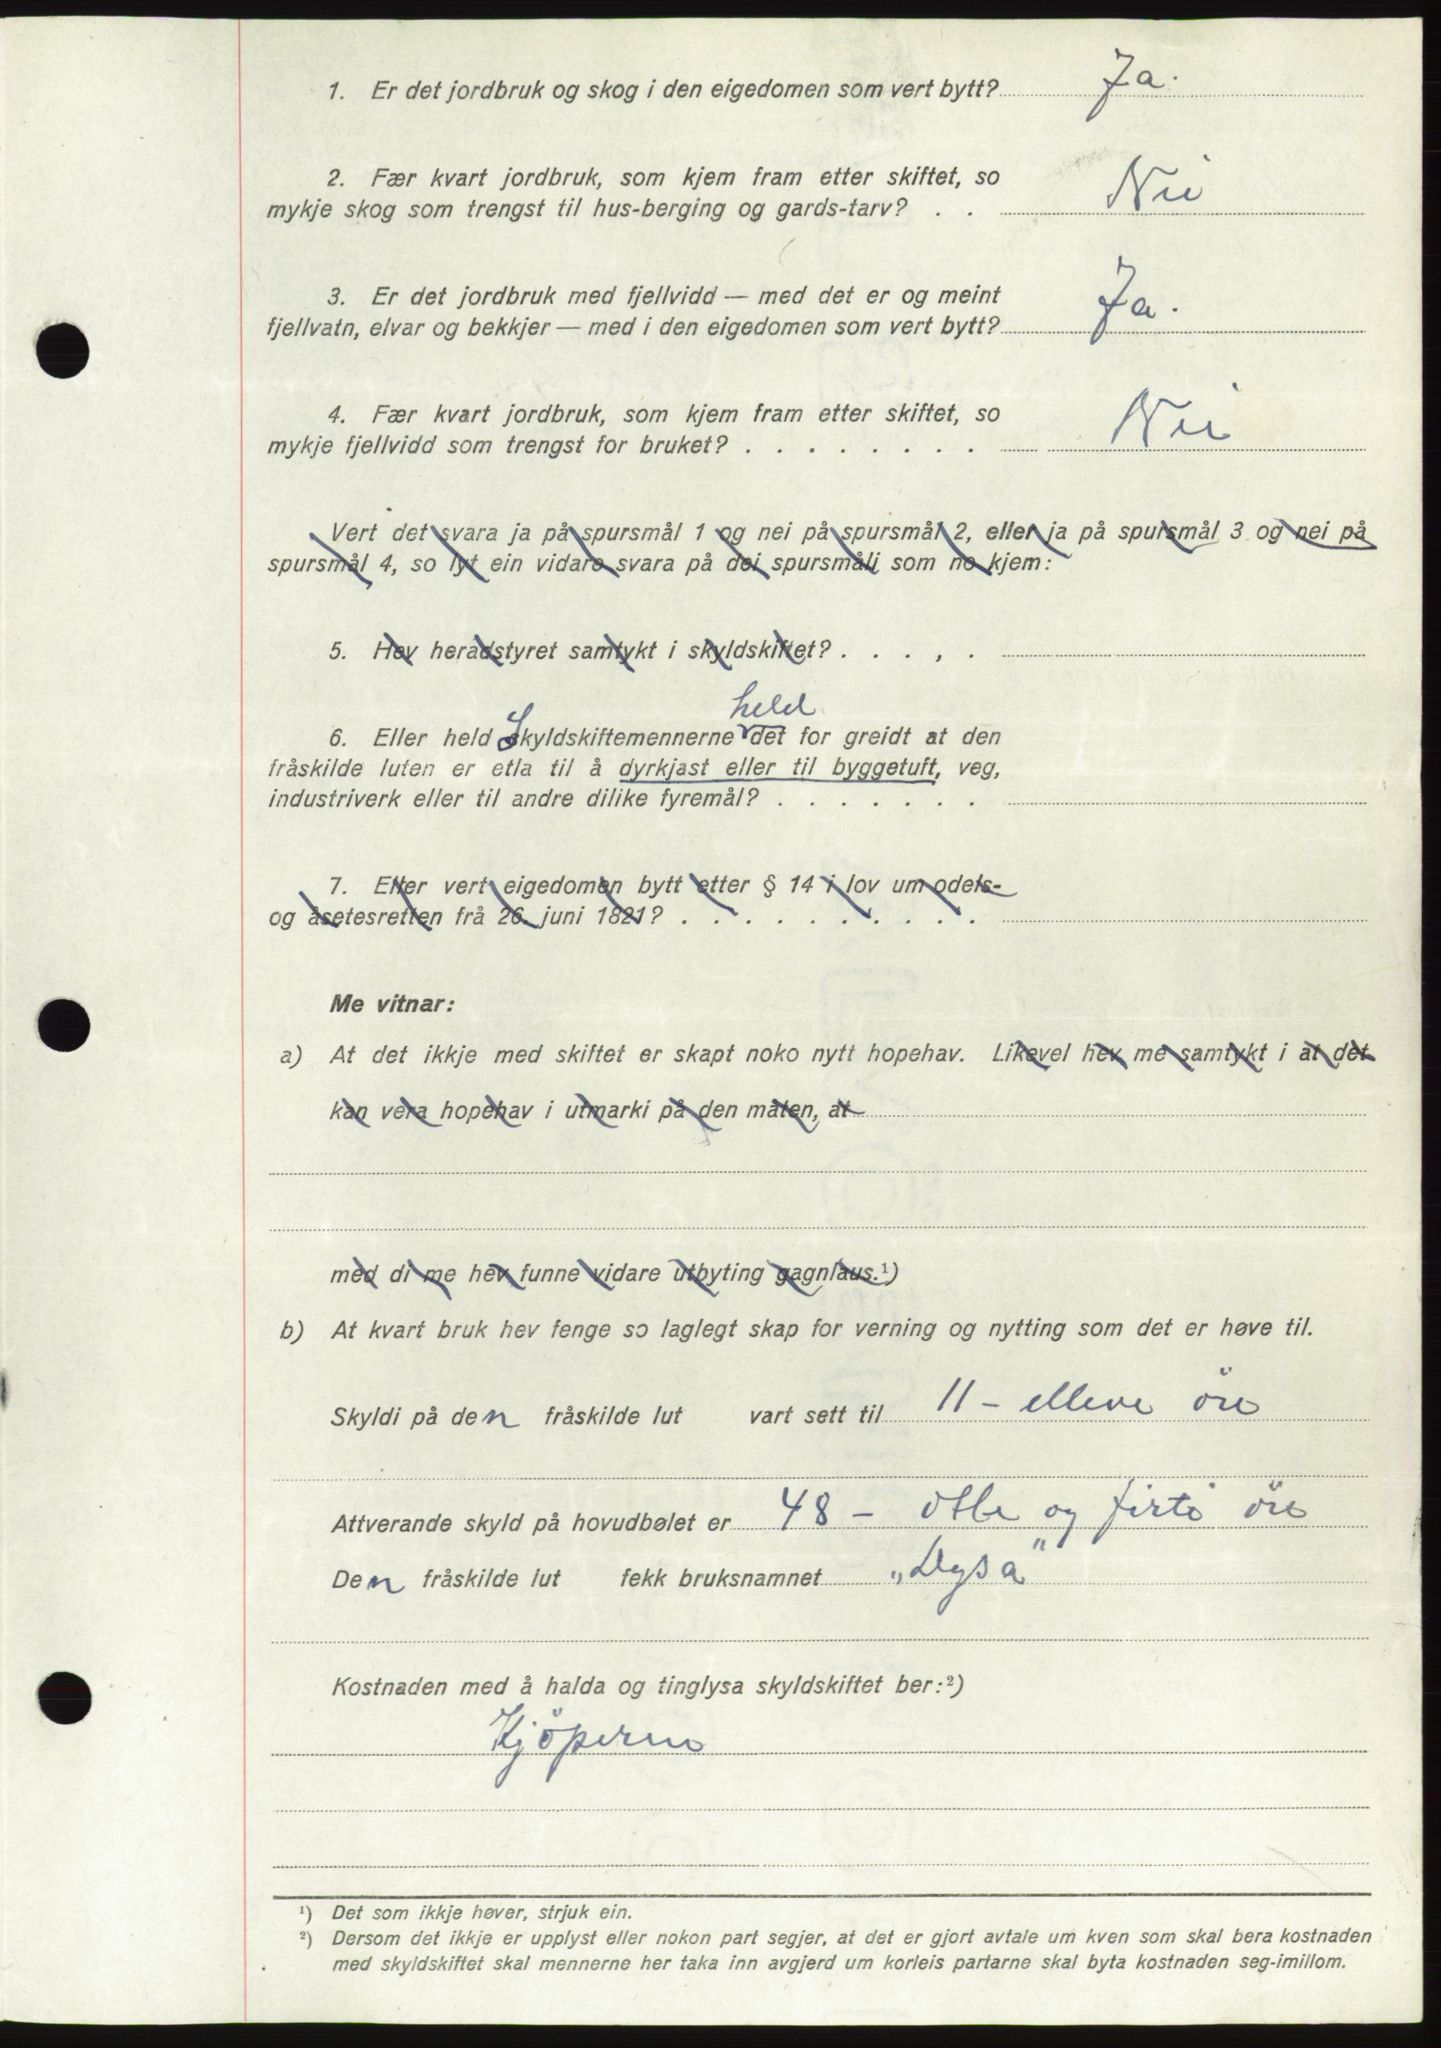 1. Er det jordbruk og skog i den eigedomen som vert bytt? Ja.
2. Fær kvart jordbruk, som kjem fram etter skiftet, so
mykje skog som trengst til hus-berging og gards-tarv? . . Nei
3. Er det jordbruk med fjellvidd — med det er og meint
fjellvatn, elvar og bekkjer — med i den eigedomen som vert bytt? Ja.
4. Fær kvart jordbruk, som kjem fram etter skiftet, so
mykje fjellvidd som trengst for bruket? . . . . . . . . Nei
Vert det svara ja på spursmål 1 og nei på spursmål 2, eller ja på spursmål 3 og nei på
spursmål 4, so lyt ein vidare svara på dei spursmåli som no kjem:
5. Hev heradstyret samtykt i skyldskiftet? . . . , .
held
6. Eller held Skyldskiftemennerne det for greidt at den
fråskilde luten er etla til å dyrkjast eller til byggetuft, veg,
industriverk eller til andre dilike fyremål? . . . . . . .
7. Eller vert eigedomen bytt etter § 14 i lov um odels-
og åsetesretten frå 26. juni 1821? . . . . . . . . . .
Me vitnar:
a) At det ikkje med skiftet er skapt noko nytt hopehav. Likevel hev me samtykt i at det
kan vera hopehav i utmarki på den måten, at
med di me hev funne vidare utbyting gagnlaus.¹)
b) At kvart bruk hev fenge so laglegt skap for verning og nytting som det er høve til.
Skyldi på den fråskilde lut vart sett til 11 – elleve öre
Attverande skyld på hovudbølet er 48 – otte og firti öre
Den fråskilde lut fekk bruksnamnet „Dysa"
Kostnaden med å halda og tinglysa skyldskiftet ber:²)
Kjöperen
¹) Det som ikkje høver, strjuk ein.
²) Dersom det ikkje er upplyst eller nokon part segjer, at det er gjort avtale um kven som skal bera kostnaden
med skyldskiftet skal mennerne her taka inn avgjerd um korleis partarne skal byta kostnaden seg-imillom.